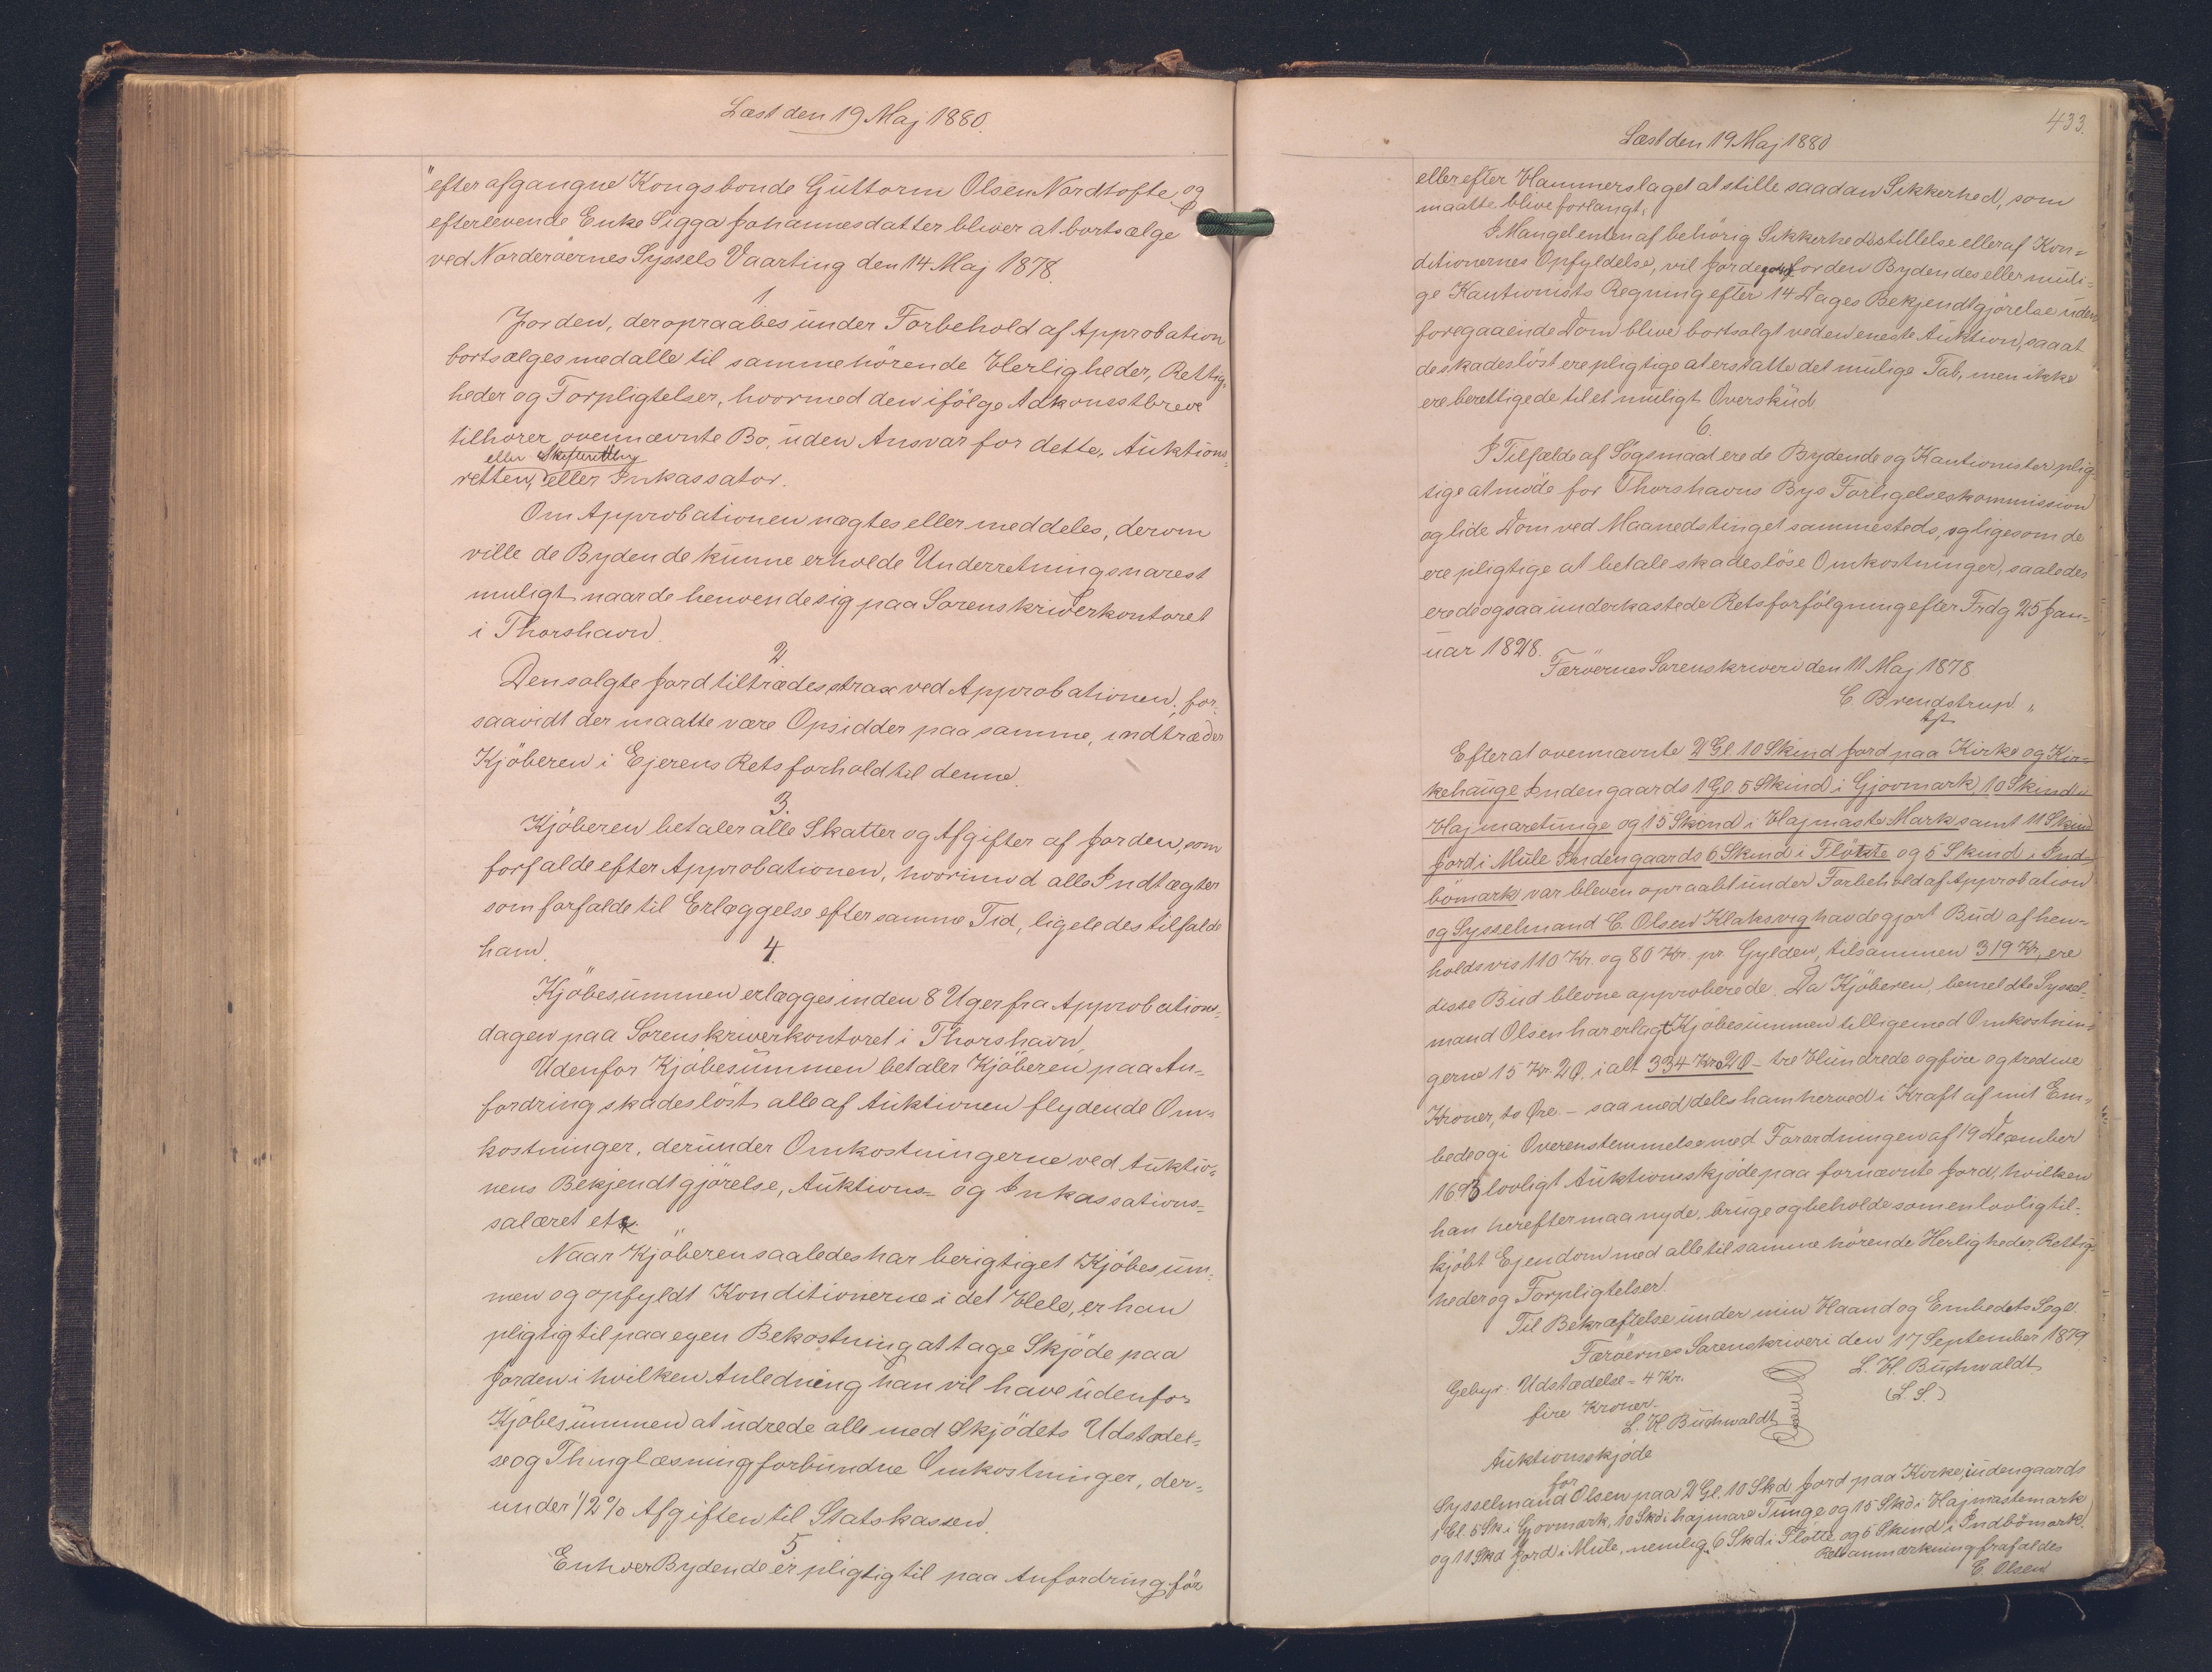 Læst den 19 Maj 1880.
"efter afgangne Kongsbonde Guttorm Olsen Nordtofte og
efterlevende Enke Sigga Johannesdatter bliver at bortsælge
ved Norderöernes Syssels Vaarting den 14 Maj 1878.
1.
Jorden, der opraabes under Forbehold af Approbation
bortsælges med alle til samme hörende Herligheder, Rettig-
heder og Forpligtelser, hvormed den ifölge Adkomstbreve
tilhorer ovennævnte Bo, uden Ansvar for dette, Auktions-
eller Skifteretten
retten, eller Inkassator.
Om Approbationen nægtes eller meddeles, derom
ville de Bydende kunne erholde Underretning snarest
muligt naar de henvende sig paa Sorenskriverkontoret
i Thorshavn.
2.
Den solgte Jord tiltrædes strax ved Approbationen, for-
saavidt der maatte være Opsidder paa samme, indtræder
Kjöberen i Ejerens Retsforhold til denne.
3.
Kjöberen betaler alle Skatter og Afgifter af Jorden, som
forfalde efter Approbationen, hvorimod alle Indtægter
som forfalde til Erlæggelse efter samme Tid, ligeledes tilfalde
ham.
4.
Kjöbesummen erlægges inden 8 Uger fra Approbations-
dagen paa Sorenskriverkontoret i Thorshavn,
Udenfor Kjöbesummen betaler Kjöberen paa An-
fordring skadeslöst alle af Auktionen flydende Om-
kostninger, derunder Omkostningerne ved Auktio-
nens Bekjendtgjörelse, Auktions- og Inkassations-
salæret etc.
Naar Kjöberen saaledes har berigtiget Kjöbesum-
men og opfyldt Konditionerne i det Hele, er han
pligtig til paa egen Bekostning at tage Skjöde paa
Jorden i hvilken Anledning han vil have udenfor
Kjöbesummen at udrede alle med Skjödets Udstædel-
se og Thinglæsning forbundne Omkostninger, der-
under 1/2 % Afgiften til Statskassen.
5
Enhver Bydende er pligtig til paa Anfordring för
433.
Læst den 19 Maj 1880
eller efter Hammerslaget at stille saadan Sikkerhed, som
maatte blive forlangt.
I Mangel enten af behörig Sikkerhedsstillelse eller af Kon-
ditionernes Opfyldelse, vil Jorden for den Bydendes eller muli-
ge Kautionists Regning efter 14 Dages Bekjendtgjörelse uden
foregaaende Dom blive bortsolgt ved en eneste Auktion, saa at
de skadeslöst ere pligtige at erstatte det mulige Tab, men ikke
ere berettigede til et muligt Overskud
6.
I Tilfælde af Sögsmaal ere de Bydende og Kautionister plig-
tige at möde for Thorshavns Bys Forligelseskommission
og lide Dom ved Maanedstinget sammesteds, og ligesom de
ere pligtige at betale skadeslöse Omkostninger, saaledes
ere de ogsaa underkastede Retsforfölgning efter Frdg 25 Jan-
uar 1828.
Færöernes Sorenskriveri den 11 Maj 1878.
C. Brendstrup "
kst.
Efter at ovennævnte 2 Gl. 10 Skind Jord paa Kirke og Kir-
kehauge Indengaards 1 Gl. 5 Skind i Gjovmark, 10 Skind i
Hajmaretunge og 15 Skind i Hajmaste Mark samt 11 Skind
Jord i Mule Indengaards 6 Skind i Flötte og 5 Skind i Ind-
bömark var bleven opraabt under Forbehold af Approbation
og Sysselmand C. Olsen Klaksvig havde gjort Bud af hen-
holdsvis 110 Kr. og 80 Kr. pr. Gylden, tilsammen 319 Kr., ere
disse Bud blevne approberede. Da Kjöberen, bemeldte Syssel-
mand Olsen har erlagt Kjöbesummen tilligemed Omkostnin-
gerne 15 Kr. 2 Ø. ialt 334 Kr. 2 Ø - tre Hundrede og fire og tredive
Kroner, to Øre. - saa meddeles ham herved i Kraft af mit Em-
bede og i Overenstemmelse med Forordningen af 19 December
1693 lovligt Auktionsskjöde paa fornævnte Jord, hvilken
han herefter maa nyde, bruge og beholde som en lovlig til-
kjöbt Ejendom med alle til samme hörende Herligheder, Rettig-
heder og Forpligtelser.
Til Bekræftelse under min Haand og Embedets Segl.
Færöernes Sorenskriveri den 17 September 1879
L. H. Buchwaldt
(L. S.)
Gebyr: Udstædelse = 4 Kr.
fire Kroner.
L. H Buchwaldt
Auktionsskjöde
for
Sysselmand Olsen paa 2 Gl. 10 Skd. Jord paa Kirke, indengaards
1 Gl. 5 Sk i Gjovmark, 10 Skd i hajmare Tunge og 15 Skd i Hajmastemark
og 11 Skd Jord i Mule, nemlig 6 Skd i Flötte og 5 Skind i Indbömark.
Retsanmærkning frafaldes
C. Olsen